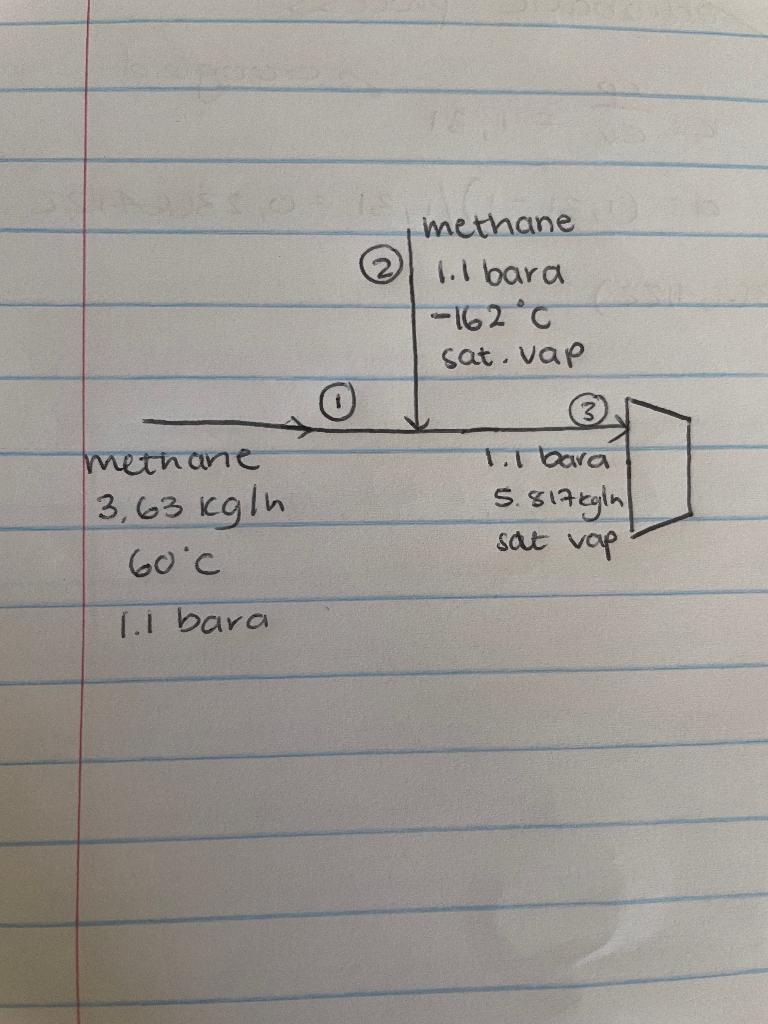 methane
② 1.1 bara
-162°C
sat. vap
① ③
methane 1.1 bara
3,63 kg/h 5.817kg/h
60°C sat vap
1.1 bara